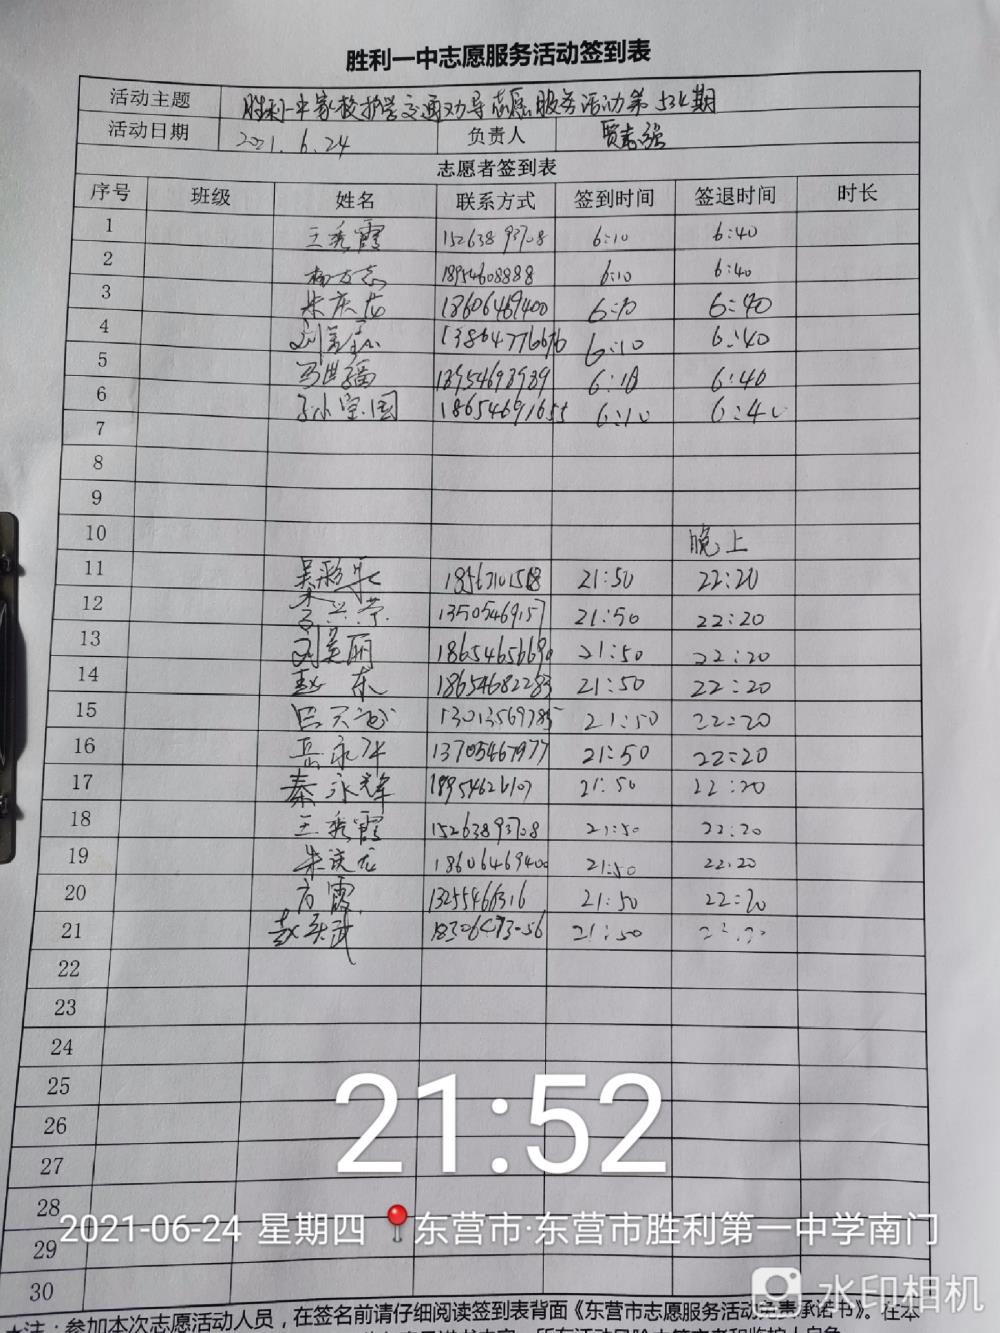 胜利一中志愿服务活动签到表
活动主题 胜利一中家校护学交通劝导志愿服务活动第534期
活动日期 2021.6.24 负责人 贾志强
志愿者签到表
序号 班级 姓名 联系方式 签到时间 签退时间 时长
1 王秀霞 15263893708 6:10 6:40
2 18954608888 6:10 6:40
3 朱庆龙 18606469400 6:10 6:40
4 13864776676 6:10 6:40
5 马世福 18954693989 6:10 6:40
6 孙宝国 18654691655 6:10 6:40
7
8
9
10 晚上
11 21:50 22:20
12 李兴荣 13505469157 21:50 22:20
13 刘美丽 18654656690 21:50 22:20
14 赵东 18654682283 21:50 22:20
15 13013569785 21:50 22:20
16 岳永 13705467977 21:50 22:20
17 秦永辉 18954626107 21:50 22:20
18 王秀霞 15263893708 21:50 22:20
19 朱庆龙 18606469400 21:50 22:20
20 方霞 13255466316 21:50 22:20
21 21:50
22
23
24
25
26
27
28
29
30
21:52
2021-06-24 星期四 东营市·东营市胜利第一中学南门
水印相机
参加本次志愿活动人员，在签名前请仔细阅读签到表背面《东营市志愿服务活动免责承诺书》。在本